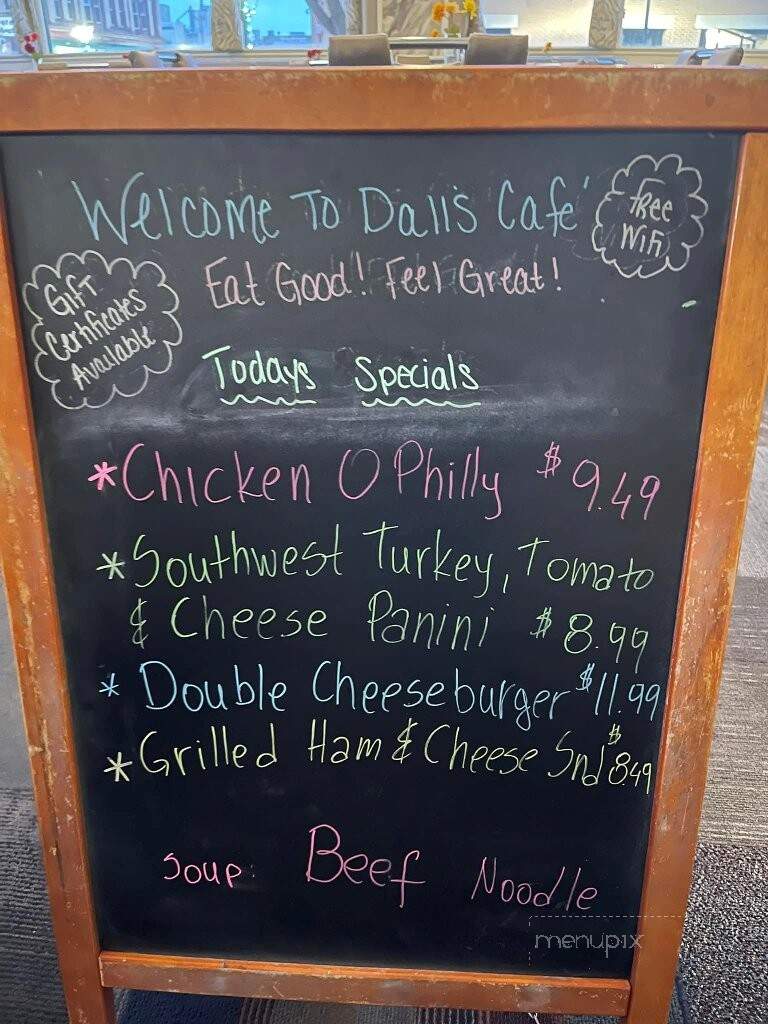 Welcome To Dalis Cafe'
Free
Wifi
Eat Good! Feel Great!
Gift
Certificates
Available
Todays Specials
*Chicken O Philly $9.49
*Southwest Turkey, Tomato
& Cheese Panini $8.99
*Double Cheeseburger $11.99
*Grilled Ham & Cheese Snd $8.49
Soup: Beef Noodle
menupix